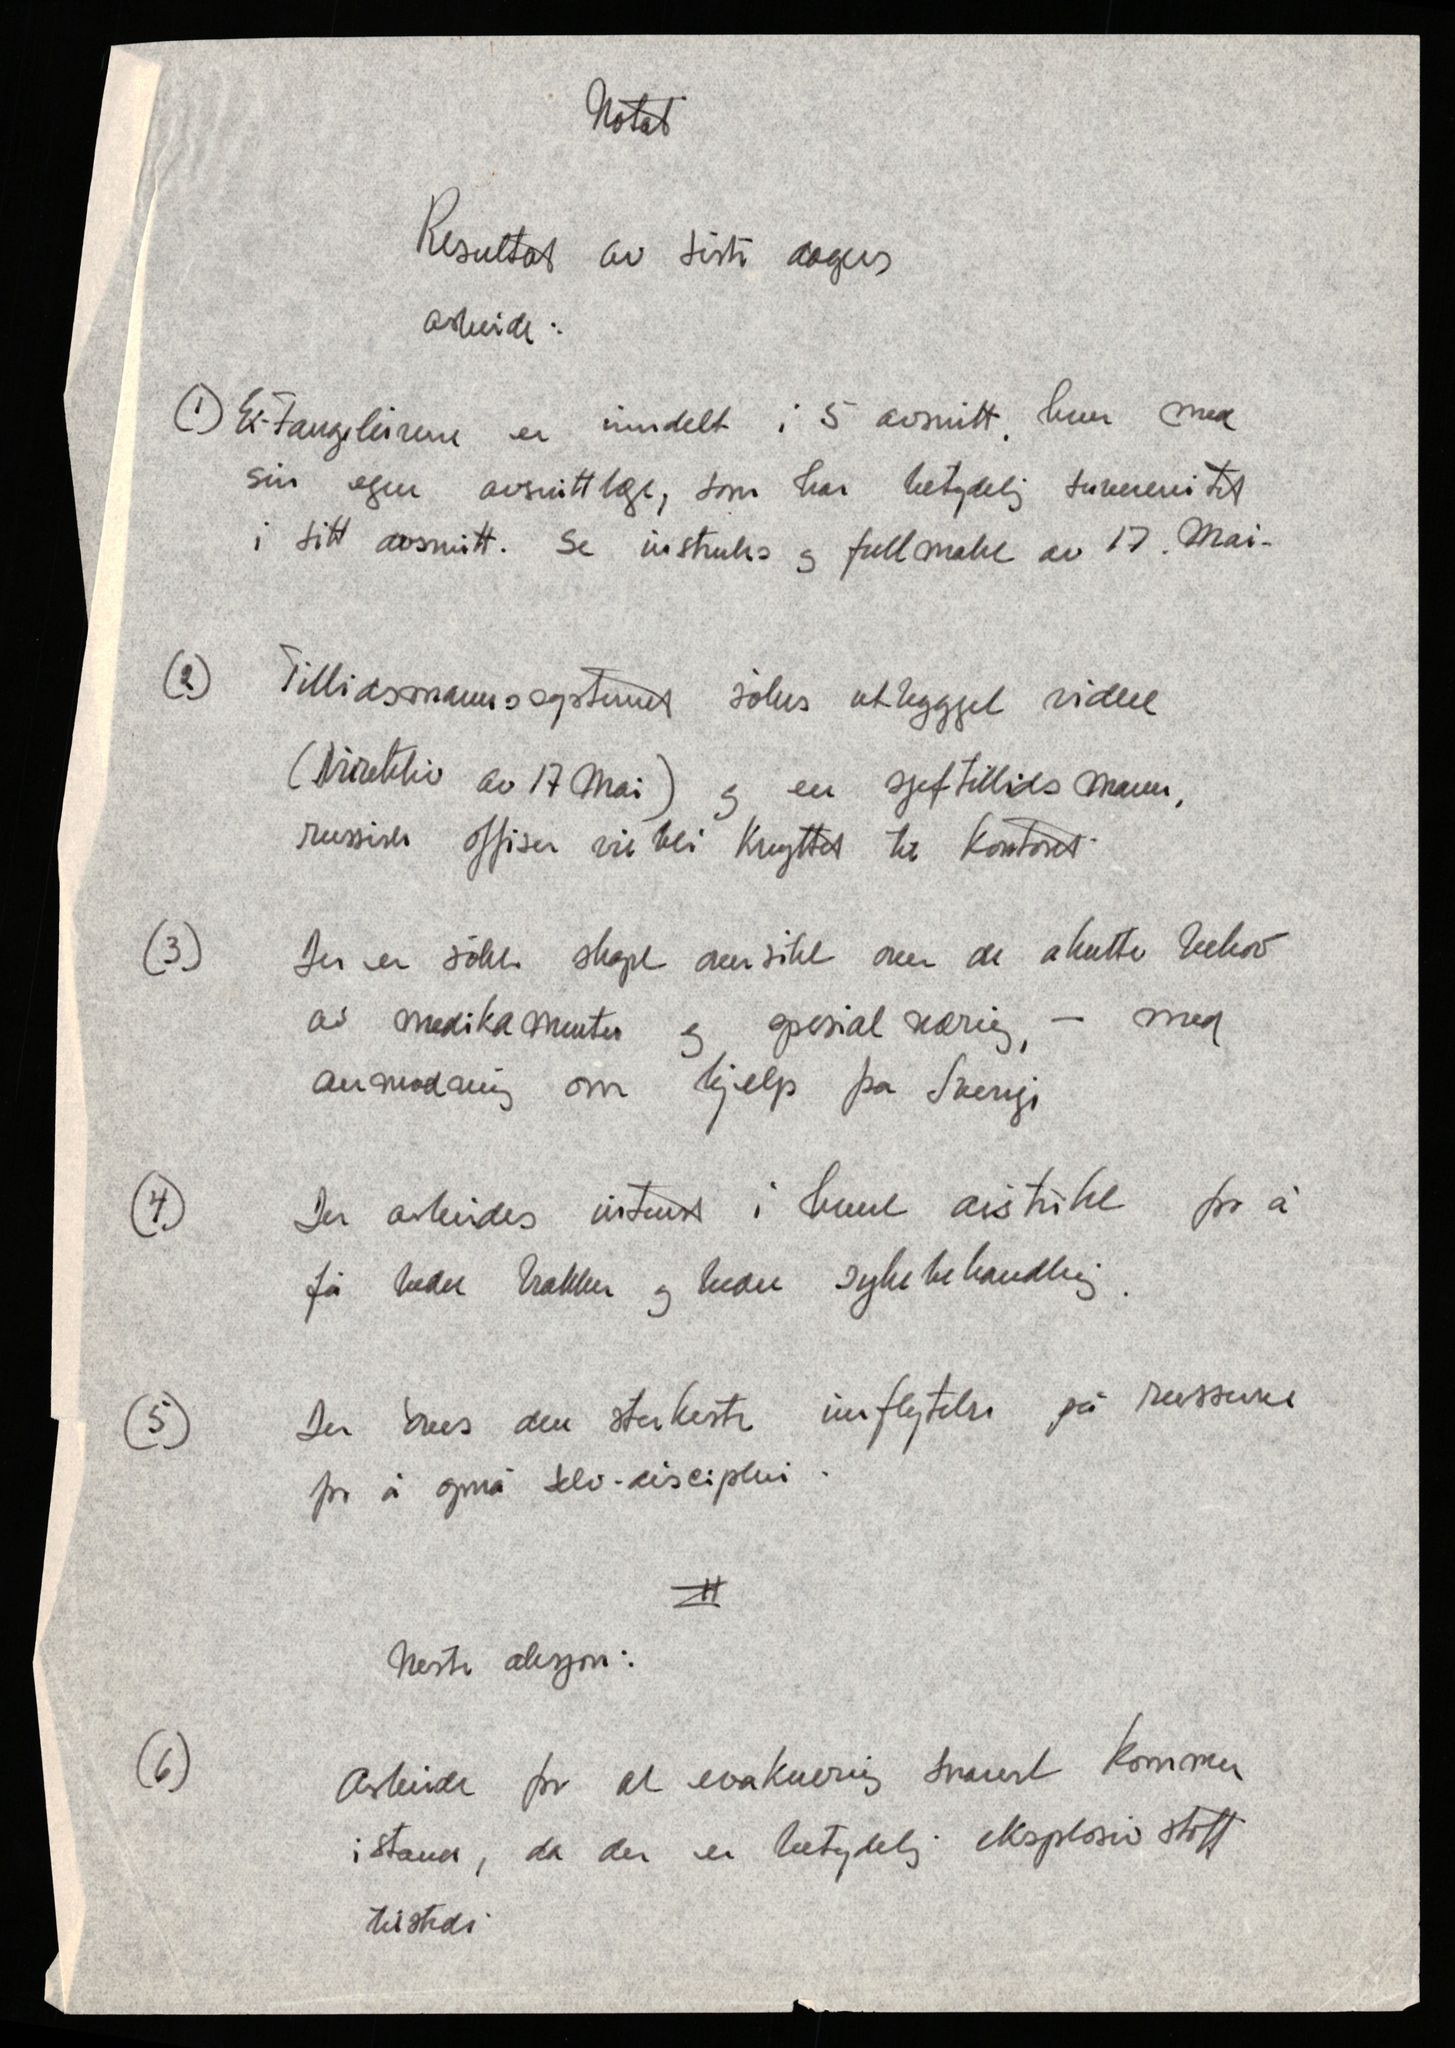 Notat
Resultat av siste dagers
arbeide:
(1) Ex-Fangeleirene er inndelt i 5 avsnitt, hver med
sin egen avsnittlege, som har betydelig suverenitet
i sitt avsnitt. Se instruks og fullmakt av 17. Mai-
(2) Tillidsmannssystemet søkes utbygget videre
(Direktiv av 17 Mai) og en sjeftillidsmann,
russisk offiser vil bli knyttet til kontoret.
(3) Der er søkt skapt oversikt over de akutte behov
av medikamenter og spesialnæring, - med
anmodning om hjelp fra Sverige
(4) Der arbeides intenst i hvert distrikt for å
få bedre brakker og bedre sykebehandling.
(5) Der øves den sterkeste innflytelse på russerne
for å opnå selv-disciplin.
Neste aksjon:
(6) Arbeide for at evakuering snarest kommer
istand, da der er betydelig eksplosiv stoff
tilstede